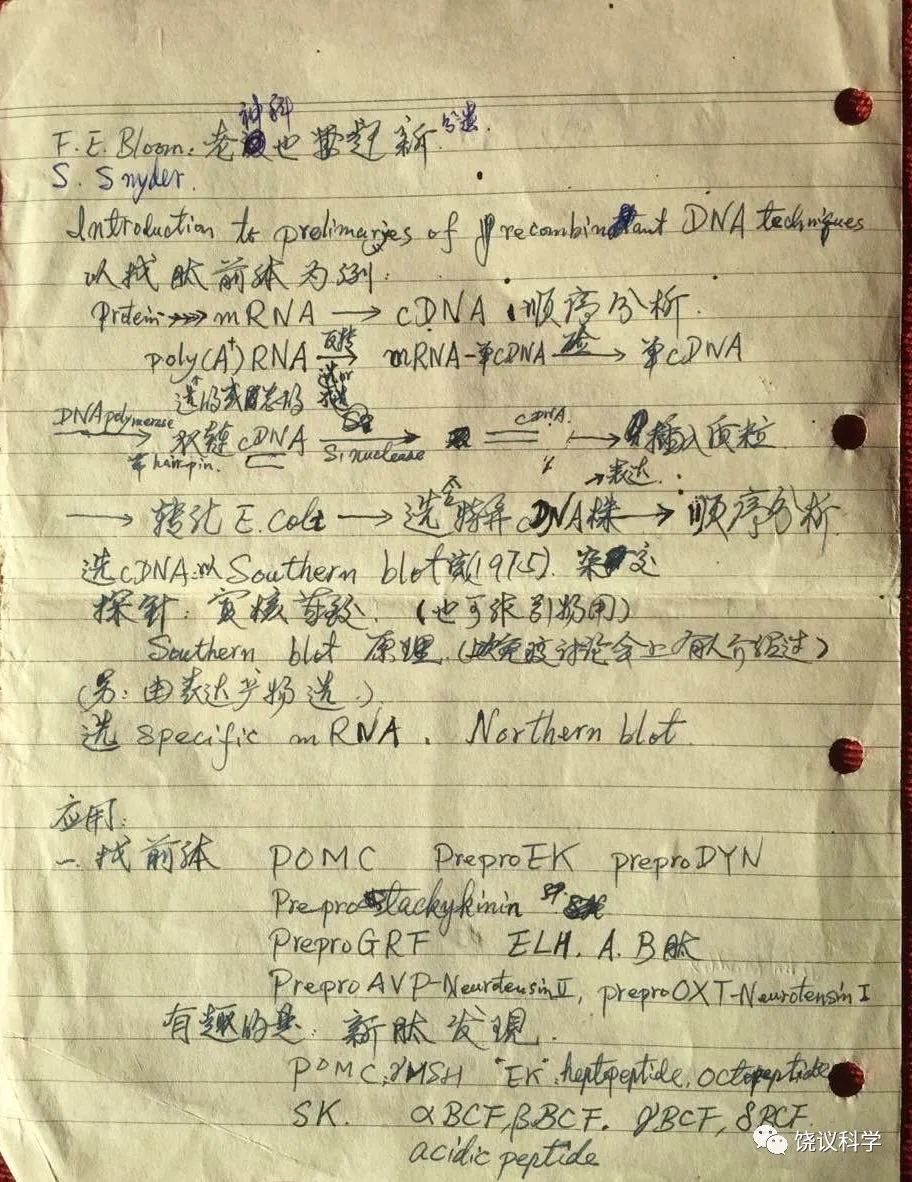 神科 分遗.
F. E. Bloom: 老 也 赶 新
S. Snyder.
Introduction to prelimaries of recombinant DNA techniques
以找肽前体为例:
Protein mRNA → cDNA 顺序分析.
poly(A⁺)RNA 反转 → mRNA-单cDNA → 单cDNA
DNA polymerase → 双链 cDNA S₁ nuclease → cDNA → 插入质粒
hairpin.
→ 表达.
→ 转化 E. coli → 选特异 cDNA株 → 顺序分析
选cDNA: 以 Southern blot (1975). 杂交
探针: 寡核苷酸. (也可作引物用)
Southern blot 原理. (免疫讨论会上有人介绍过)
(另: 由表达产物选.)
选 specific mRNA. Northern blot.
应用:
一. 找前体 POMC PreproEK preproDYN
Preprotachykinin SP.
PreproGRF ELH. A. B肽
PreproAVP-NeurotensinⅡ, preproOXT-NeurotensinⅠ
有趣的是: 新肽发现.
POMC, γMSH "EK". heptopeptide, octopeptide
SK. αBCF, βBCF. γBCF, δBCF.
acidic peptide
饶议科学